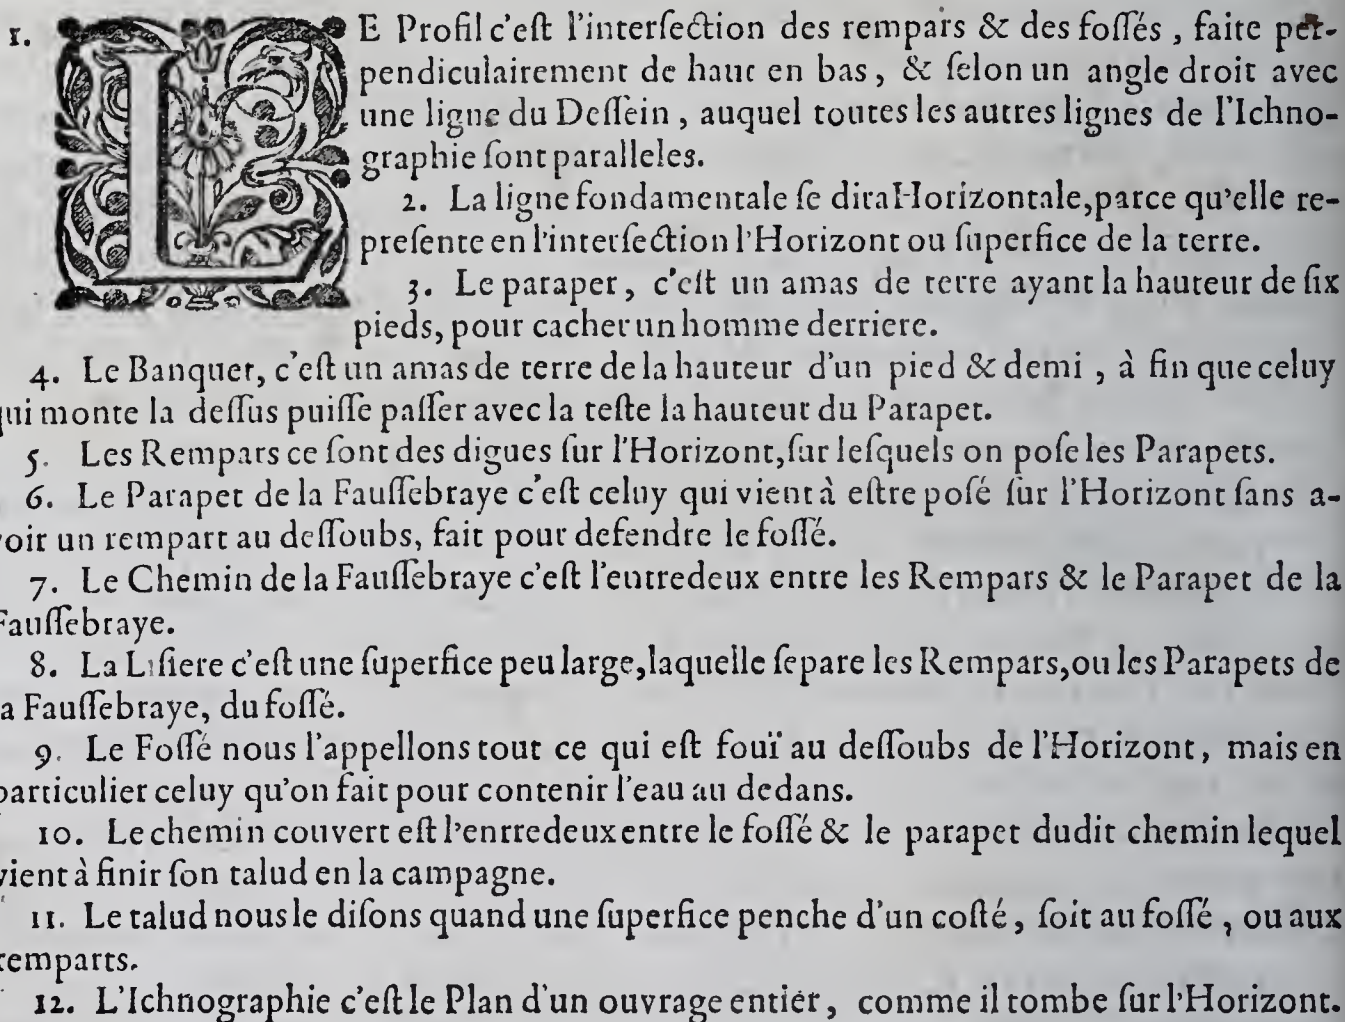 1. LE Profil c'eſt l'interſection des rempars & des foſſés , faite per-
pendiculairement de haut en bas, & ſelon un angle droit avec
une ligne du Deſſein , auquel toutes les autres lignes de l'Ichno-
graphie ſont paralleles.
2. La ligne fondamentale ſe dira Horizontale, parce qu'elle re-
preſente en l'interſection l'Horizont ou ſuperfice de la terre.
3. Le paraper, c'eſt un amas de terre ayant la hauteur de ſix
pieds, pour cacher un homme derriere.
4. Le Banquet, c'eſt un amas de terre de la hauteur d'un pied & demi , à fin que celuy
qui monte la deſſus puiſſe paſſer avec la teſte la hauteur du Parapet.
5. Les Rempars ce ſont des digues ſur l'Horizont, ſur leſquels on poſe les Parapets.
6. Le Parapet de la Fauſſebraye c'eſt celuy qui vient à eſtre poſé ſur l'Horizont ſans a-
voir un rempart au deſſoubs, fait pour defendre le foſſé.
7. Le Chemin de la Fauſſebraye c'eſt l'entredeux entre les Rempars & le Parapet de la
Fauſſebraye.
8. La Liſiere c'eſt une ſuperfice peu large, laquelle ſepare les Rempars, ou les Parapets de
la Fauſſebraye, du foſſé.
9. Le Foſſé nous l'appellons tout ce qui eſt fouï au deſſoubs de l'Horizont, mais en
particulier celuy qu'on fait pour contenir l'eau au dedans.
10. Le chemin couvert eſt l'enrredeux entre le foſſé & le parapet dudit chemin lequel
vient à finir ſon talud en la campagne.
11. Le talud nous le diſons quand une ſuperfice penche d'un coſté, ſoit au foſſé , ou aux
remparts.
12. L'Ichnographie c'eſt le Plan d'un ouvrage entier, comme il tombe ſur l'Horizont.